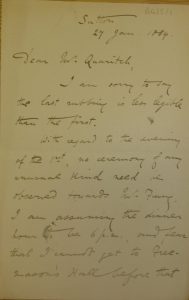 Sutton
27 Jan. 1884.
Dear Mr. Quaritch,
I am sorry to say
the last rubbing is less legible
than the first.
With regard to the evening
of 1st, no ceremony of any
unusual kind need be
observed towards Mr.
I am assuming the dinner
hour to be 6 p.m. and fear
that I cannot get to Free-
mason's Hall before that